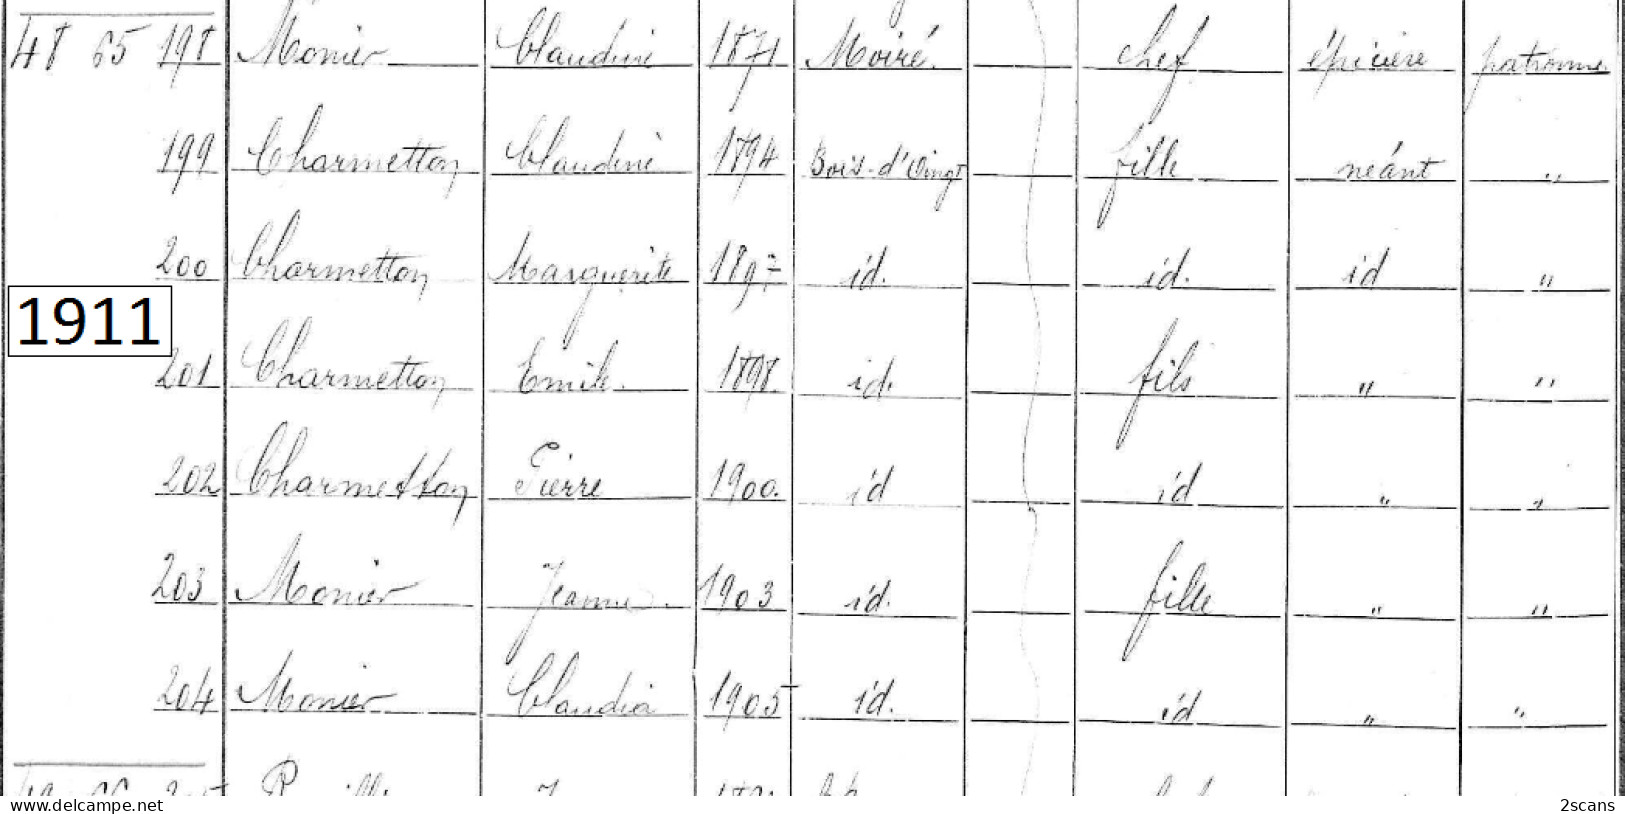 48 65 198 Monier Claudine 1871 Moiré chef épicière patronne
199 Charmetton Claudine 1894 Bois-d'Oingt fille néant "
200 Charmetton Marguerite 1897 id. id. id "
1911
201 Charmetton Emile 1898 id. fils " "
202 Charmetton Pierre 1900. id id " "
203 Monier Jeanne 1903 id. fille " "
204 Monier Claudia 1905 id. id " "
www.delcampe.net 2scans